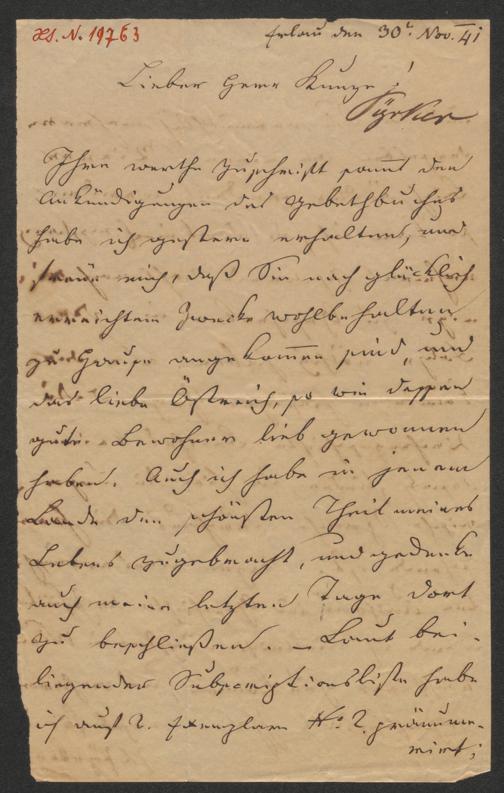 HS. N. 19763
Erlau den 30t. Nov. 41
Lieber Herr Kunze!
Pyrker
Ihre werthe Zuschrift sammt den
Ankündigungen des Gebethbuches
habe ich gestern erhalten, und
freue mich, daß Sie nach glücklich
erreichtem Zwecke wohlbehalten
zu Hause angekommen sind, und
das liebe Östreich, so wie dessen
gute Bewohner lieb gewonnen
haben. Auch ich habe in jenem
Lande den schönsten Theil meines
Lebens zugebracht, und gedenke
auch meine letzten Tage dort
zu beschließen. – Laut bei-
liegender Subscriptionsliste habe
ich auf 2. Exemplare No. 2. pränume-
rirt;